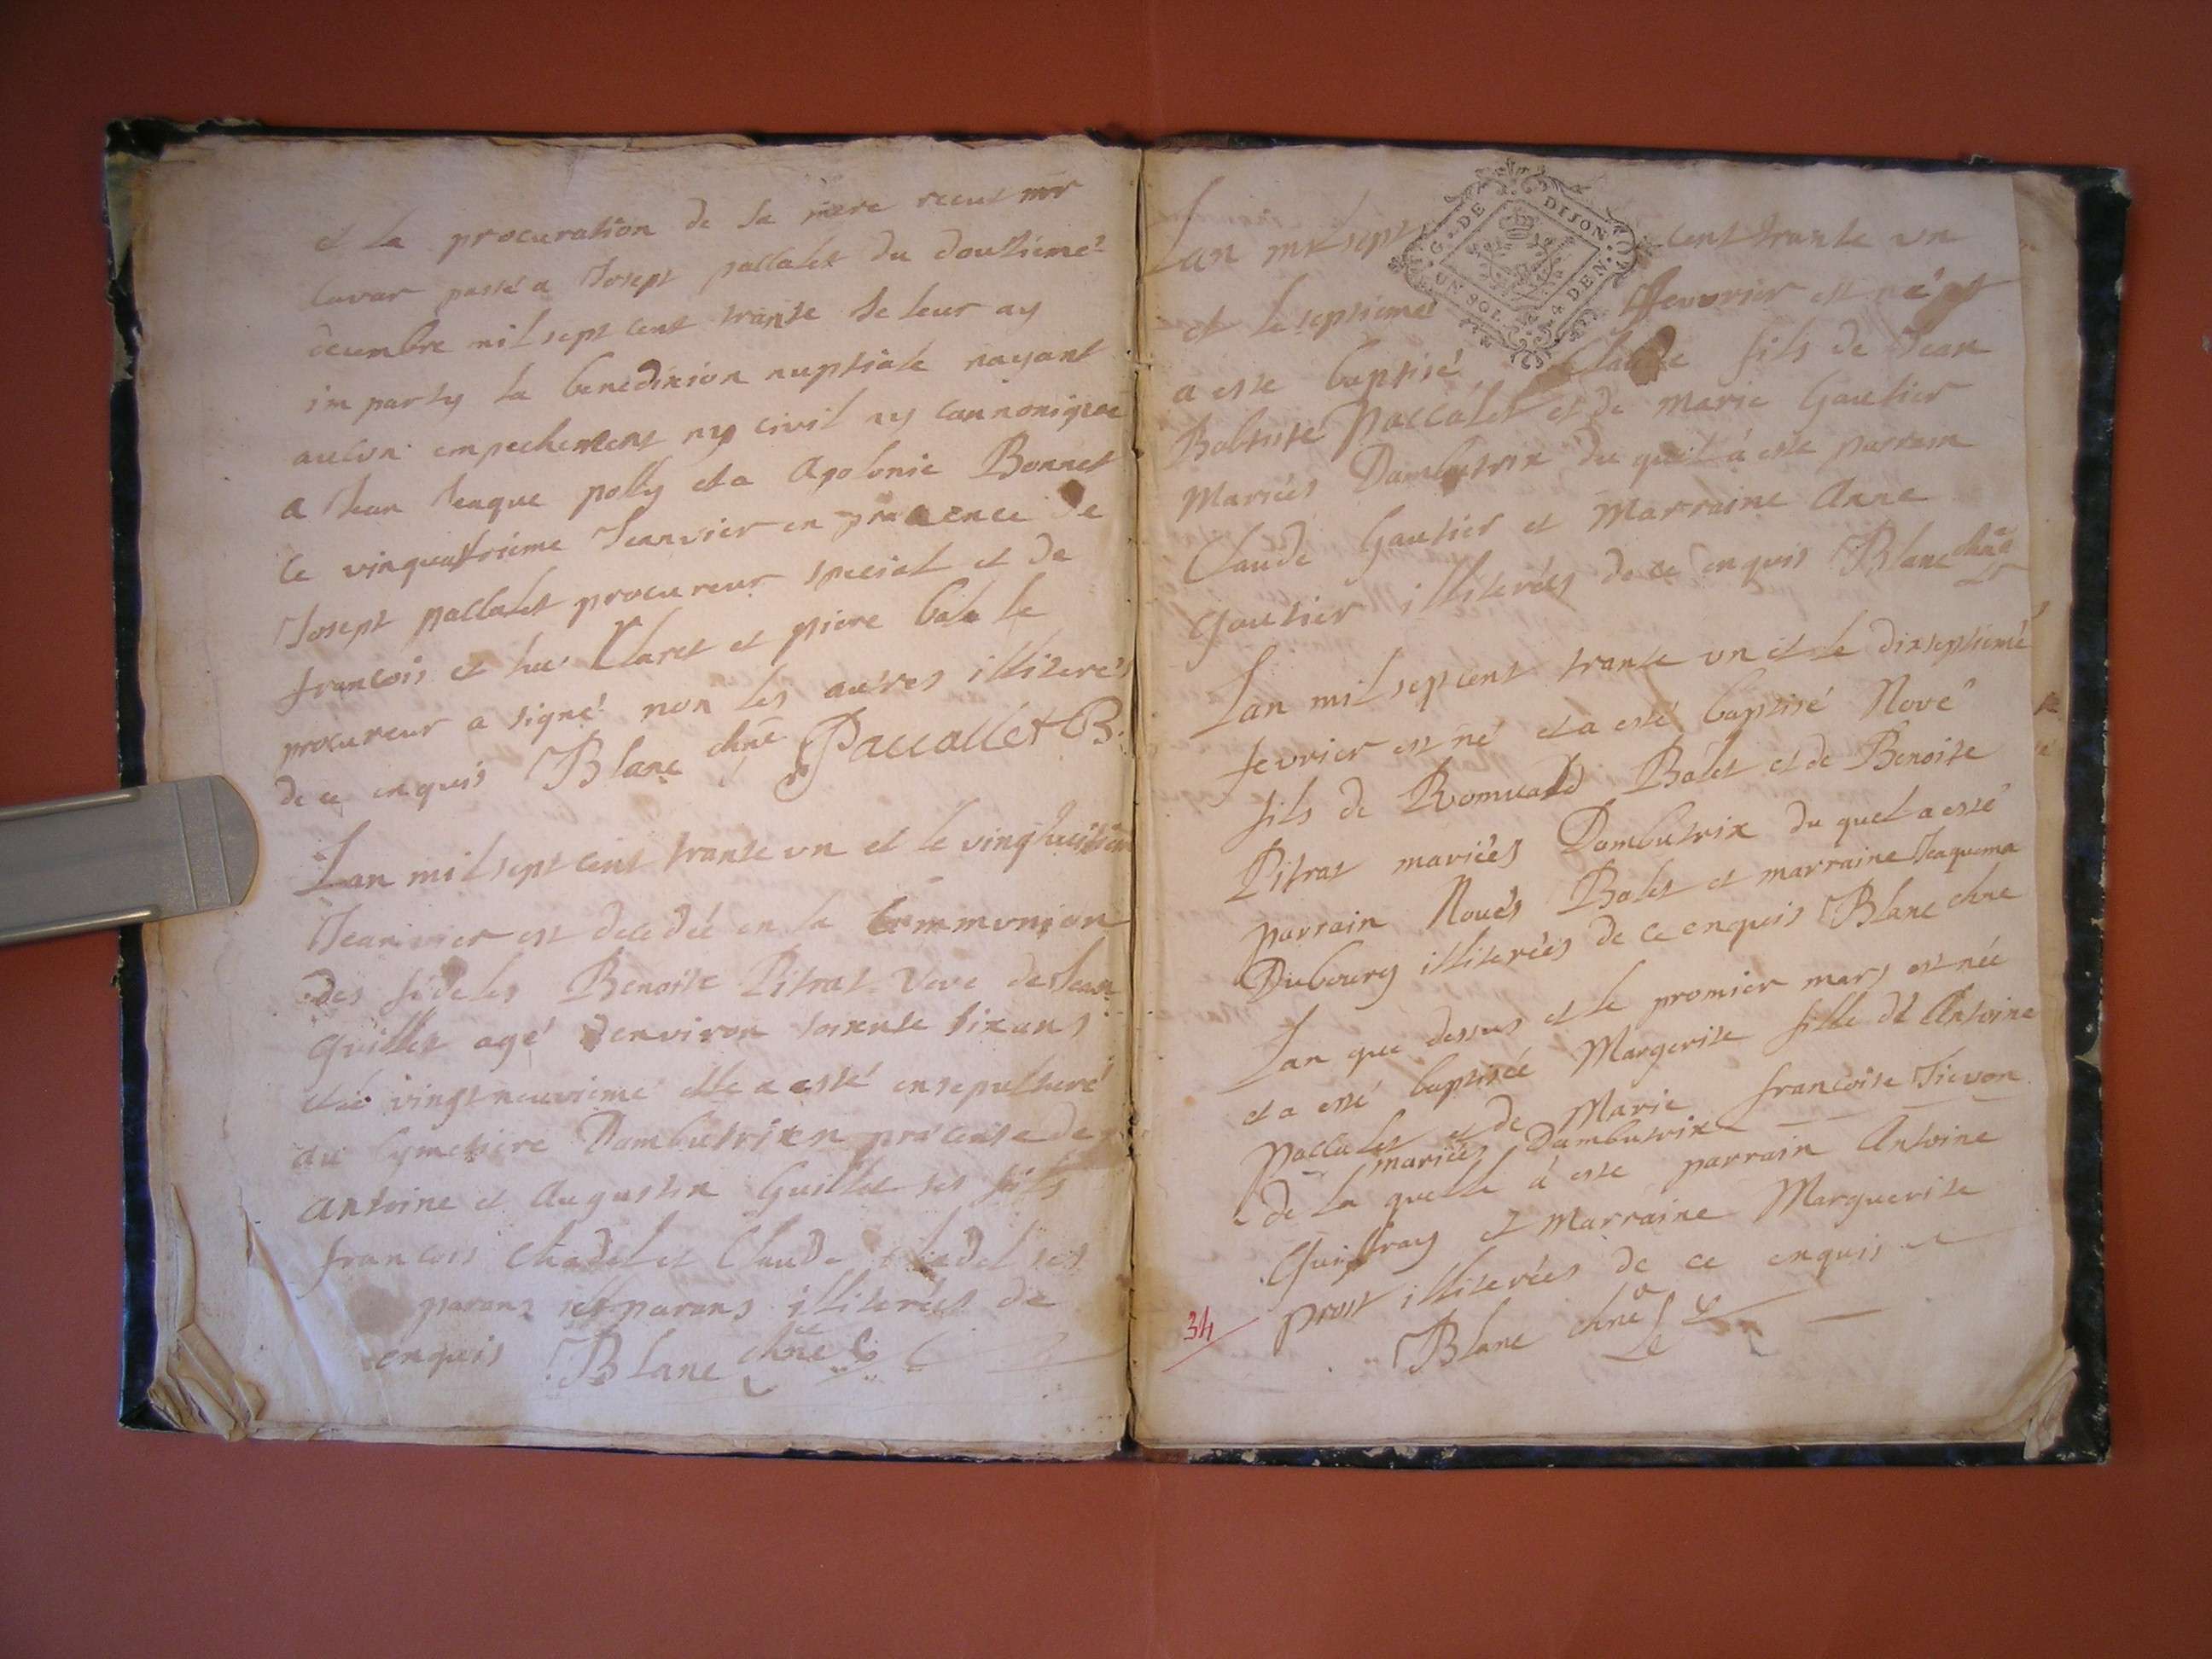 et la procuration de sa mere receut mr
lavar passé a Josept pallalet du doutiéme
decembre mil sept cent trante Je leur ay
im party la benedixion nuptiale nayant
aucun empechement ny civil ny cannonique
a Jean Jenque polly et a Apolonie Bonnet
le vinquatriéme Jeanvier en præsence de
Josept pallalet procureur special et de
francois et luc Claret et piere bala le
procureur a signé non les autres illiterés
de ce enquis Blanc chne Paccallet B.
Lan mil sept cent trante un et le vinghuitiem
Jeanvier est decedée en la Communion
des fideles Benoite Pitrat veve de Jean
Guillet agé denviron soixente six ans
et le vingtneuvieme elle a esté ensepulturé
au Cymetiere Dambutrix en præsense de
antoine et Augustin Guillet ses fils
francois Chadel et Claude Chadel ses
parans illiterées de
enquis Blanc chne
Lan mil sept cent trante un
et le septieme ffevvrier est né et
a este baptisé Claude fils de Jean
Babtiste Paccalet et de marie Gautier
Mariés Dambutrix du quel à este parrain
Claude Gautier et Marraine Anne
Gautier illiterées de ce enquis Blanc chne
Lan mil sept cent trante un et le dixseptieme
fevrier est né et a esté baptisé Nové
fils de Romuald Balet et de Benoite
Pitrat mariées Dambutrix du quel a esté
parrain Noués Balet et marraine Jaquema
Dubourg illiterées de ce enquis Blanc chne
Lan que dessus et le promier mars est née
et a esté baptisée Margerite fille de Antoine
Paccalet et de Marie francoise Tievon
mariées Dambutrix
de la quelle à este parrain Antoine
Guiffray et Marraine Marguerite
prost illiterées de ce enquis
Blanc chne
G. DE DIJON
UN SOL. 4 DEN.
34